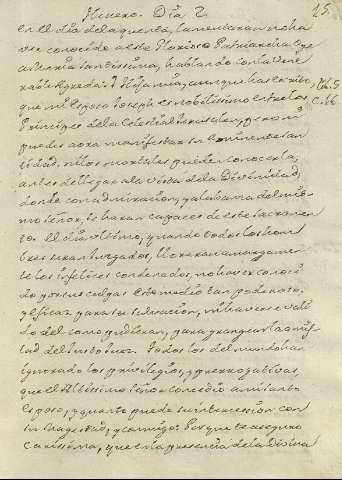 Henero. Dia 2
15
en el dia de la quenta, lamentaran no ha
ver conocido a este Glorioso Patriarcha. Oye
a Maria Santissima, hablando con la Vene
rable Agreda: Hija mia, aunque has escrito,
que mi Esposo Joseph es nobilissimo entre los
Principes de la Celestial Jerusalen, pero ni
puedes aora manifestar su eminente san
tidad, ni los mortales pueden conocerla,
antes de llegar a la vista de la Divinidad,
donde con admiracion, y alabanza del mis-
mo Señor, se haran capaces de este sacramen
to. El dia ultimo, quando todos los hom
bres seran juzgados, lloraran amargamen
te los infelices condenados, no haver conoci
do por sus culpas este medio tan poderoso,
y eficaz para su salvacion, ni haverse vali
do del como pudieran, para grangear la amis
tad del Justo Juez. Todos los del mundo han
ignorado los privilegios, y prerrogativas,
que el Altissimo Señor concedio a mi santo
Esposo, y quanto puede su intercession con
su Magestad, y conmigo: Porque te asseguro
carissima, que en la presencia de la Divina